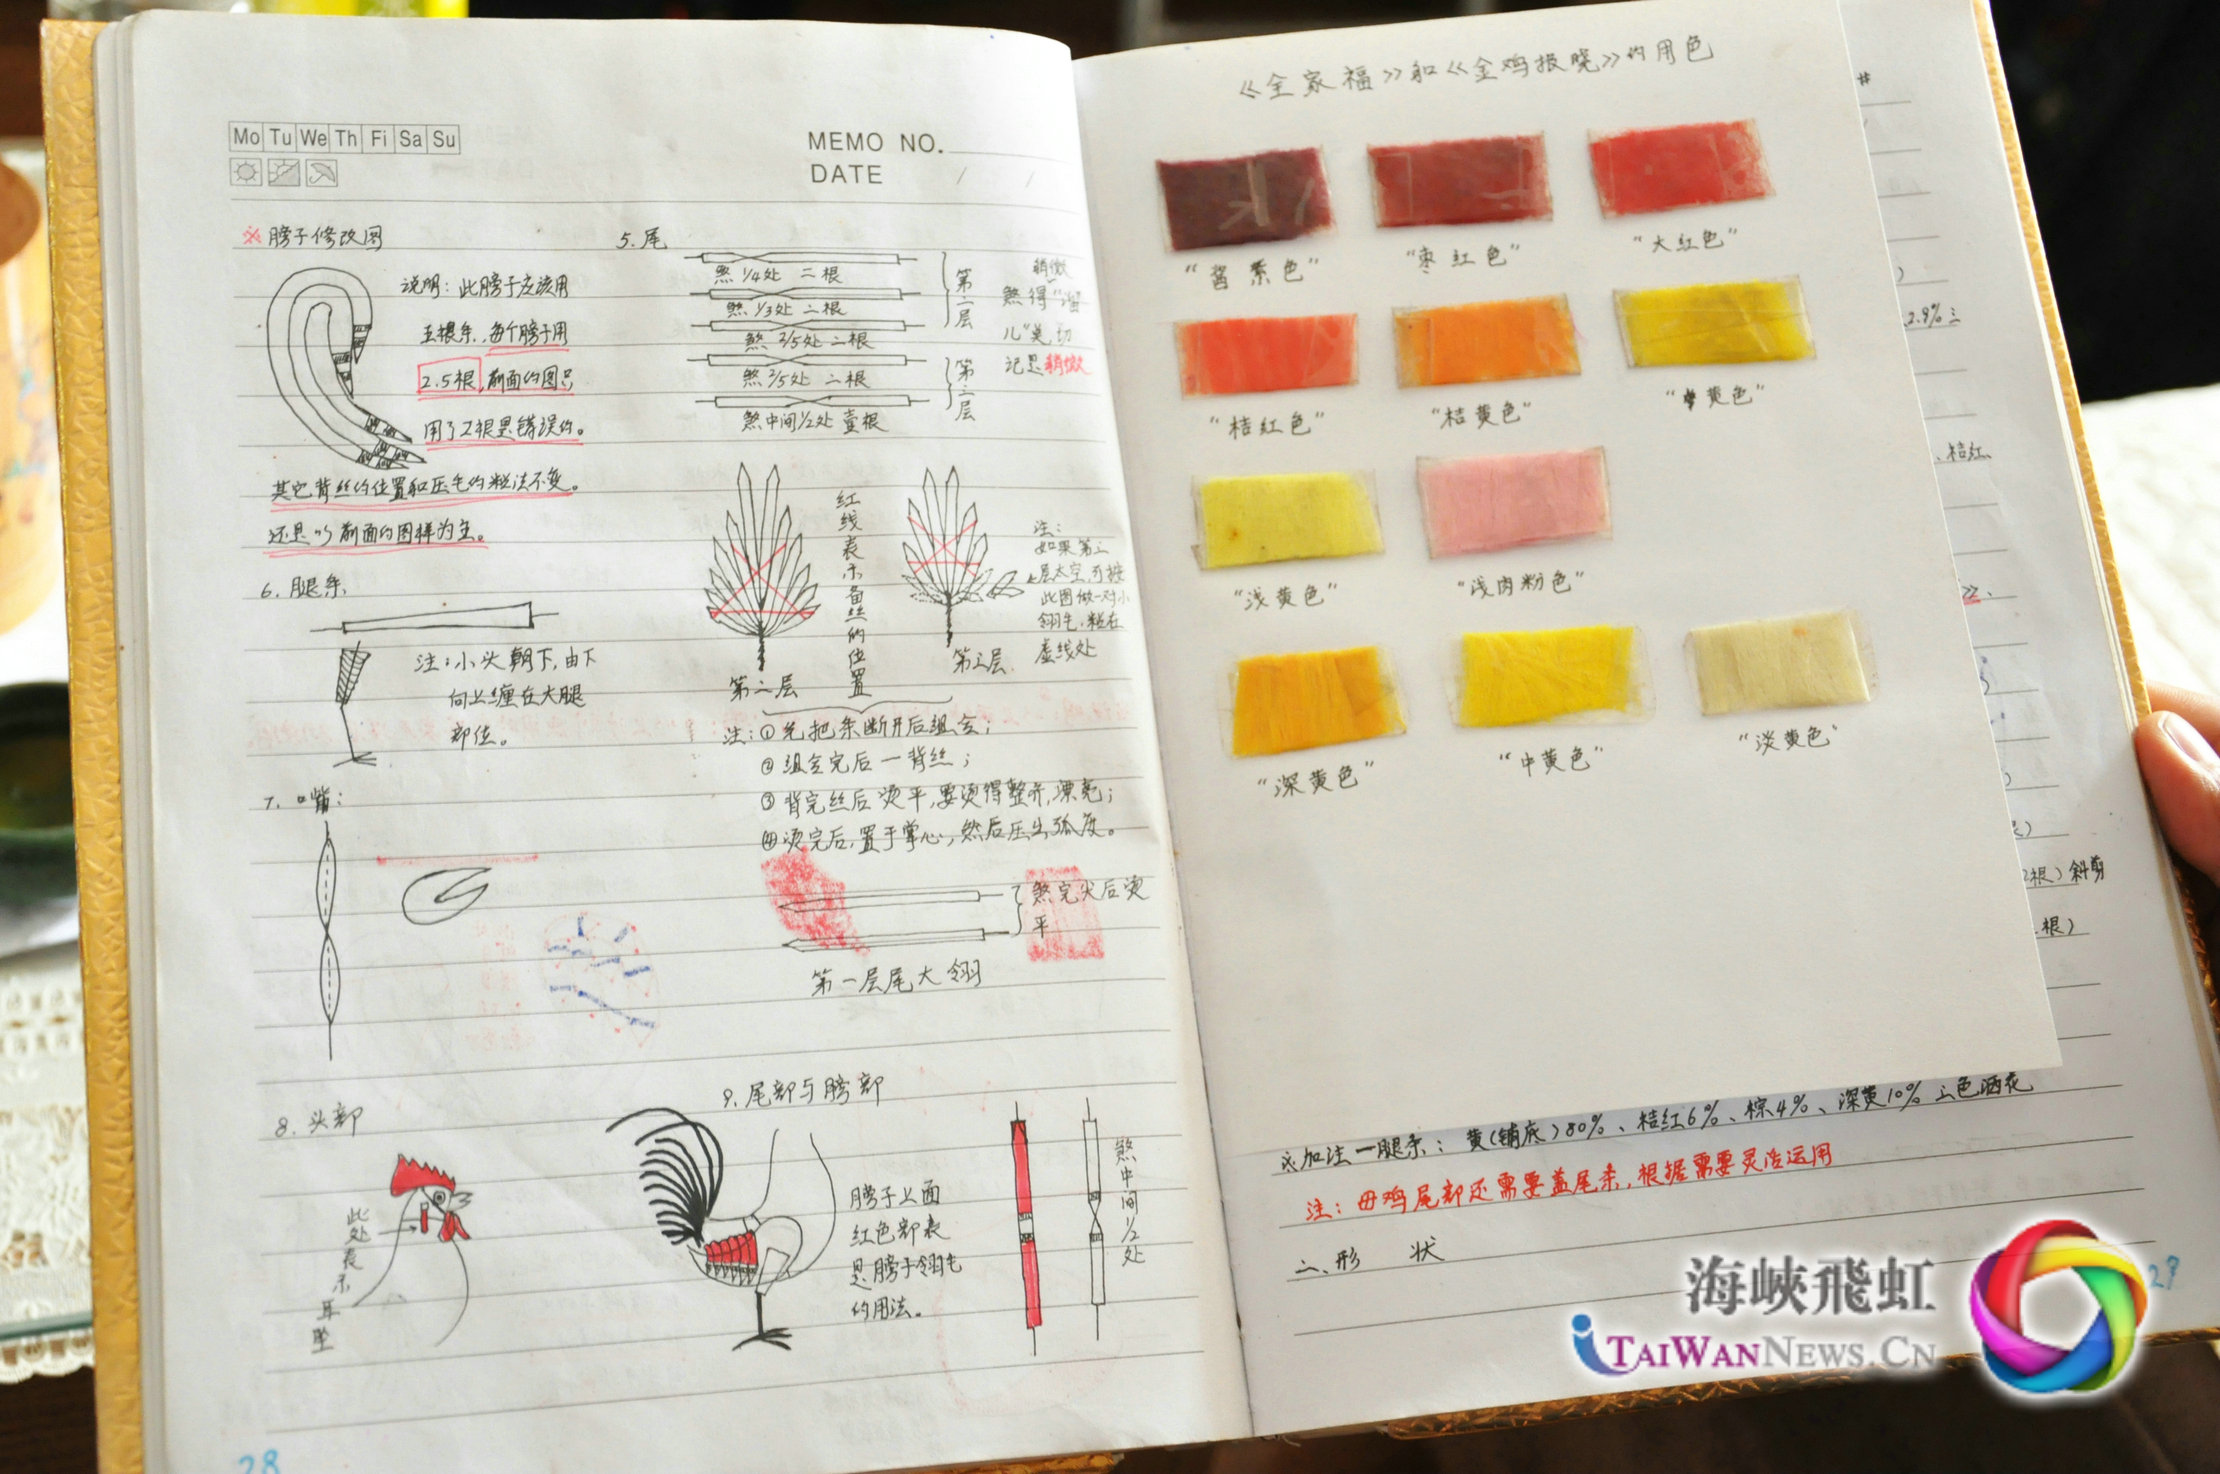 Mo Tu We Th Fi Sa Su
MEMO NO.
DATE / /
※ 膀子修改图
说明：此膀子应该用
五根条，每个膀子用
2.5根，前面的图只
用了2根是错误的。
其它背丝的位置和压毛的粘法不变。
还是以前面的图样为主。
5. 尾
煞1/4处 二根
煞1/3处 二根
煞2/5处 二根
第二层
煞2/5处 二根
煞中间1/2处 壹根
第三层
稍微
煞得
儿"美 切
记是稍微
红线表示备丝的位置
第二层
第三层
注：
如果第三
层太空，可按
此图做一对小
翎毛，粘在
虚线处
注：①先把条断开后组合；
②组合完后一背丝；
③背完丝后烫平，要烫得整齐，漂亮；
④烫完后，置于掌心，然后压出弧度。
煞完尖后烫
平
第一层尾大翎
6. 腿条
注：小头朝下，由下
向上缠在大腿
部位。
7. 口嘴：
8. 头部
此处表示耳坠
9. 尾部与膀部
膀子上面
红色部表
是膀子翎毛
的用法。
煞中间1/2处
28
《全家福》和《金鸡报晓》的用色
"酱紫色" "枣红色" "大红色"
"桔红色" "桔黄色" "黄色"
"浅黄色" "浅肉粉色"
"深黄色" "中黄色" "淡黄色"
#
2.8%
、桔红、
2根）斜剪
根）
※加注一腿条：黄（铺底）80%、桔红6%、棕4%、深黄10% 三色洒花
注：母鸡尾部还需要盖尾条，根据需要灵活运用
二、形 状
29
海峽飛虹
iTAIWANNEWS.CN